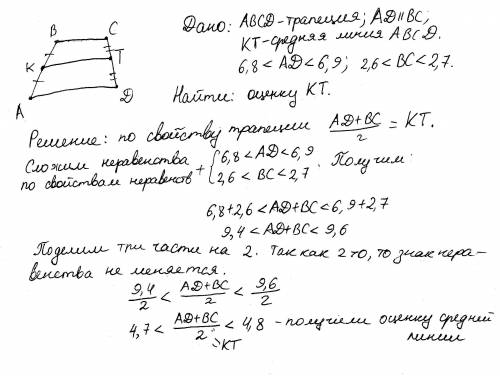 Дано: ABCD-трапеция; AD∥BC;
KT-средняя линия ABCD.
6,8 < AD < 6,9; 2,6 < BC < 2,7.
Найти: оценку KT.
B C
K T
A D
Решение: по свойству трапеции AD+BC/2 = KT.
Сложим неравенства
по свойствам неравенств + { 6,8 < AD < 6,9
2,6 < BC < 2,7. Получим:
6,8+2,6 < AD+BC < 6,9+2,7
9,4 < AD+BC < 9,6
Поделим три части на 2. Так как 2>0, то знак нера-
венства не меняется.
9,4/2 < AD+BC/2 < 9,6/2
4,7 < AD+BC/2 < 4,8 - получили оценку средней
=KT линии